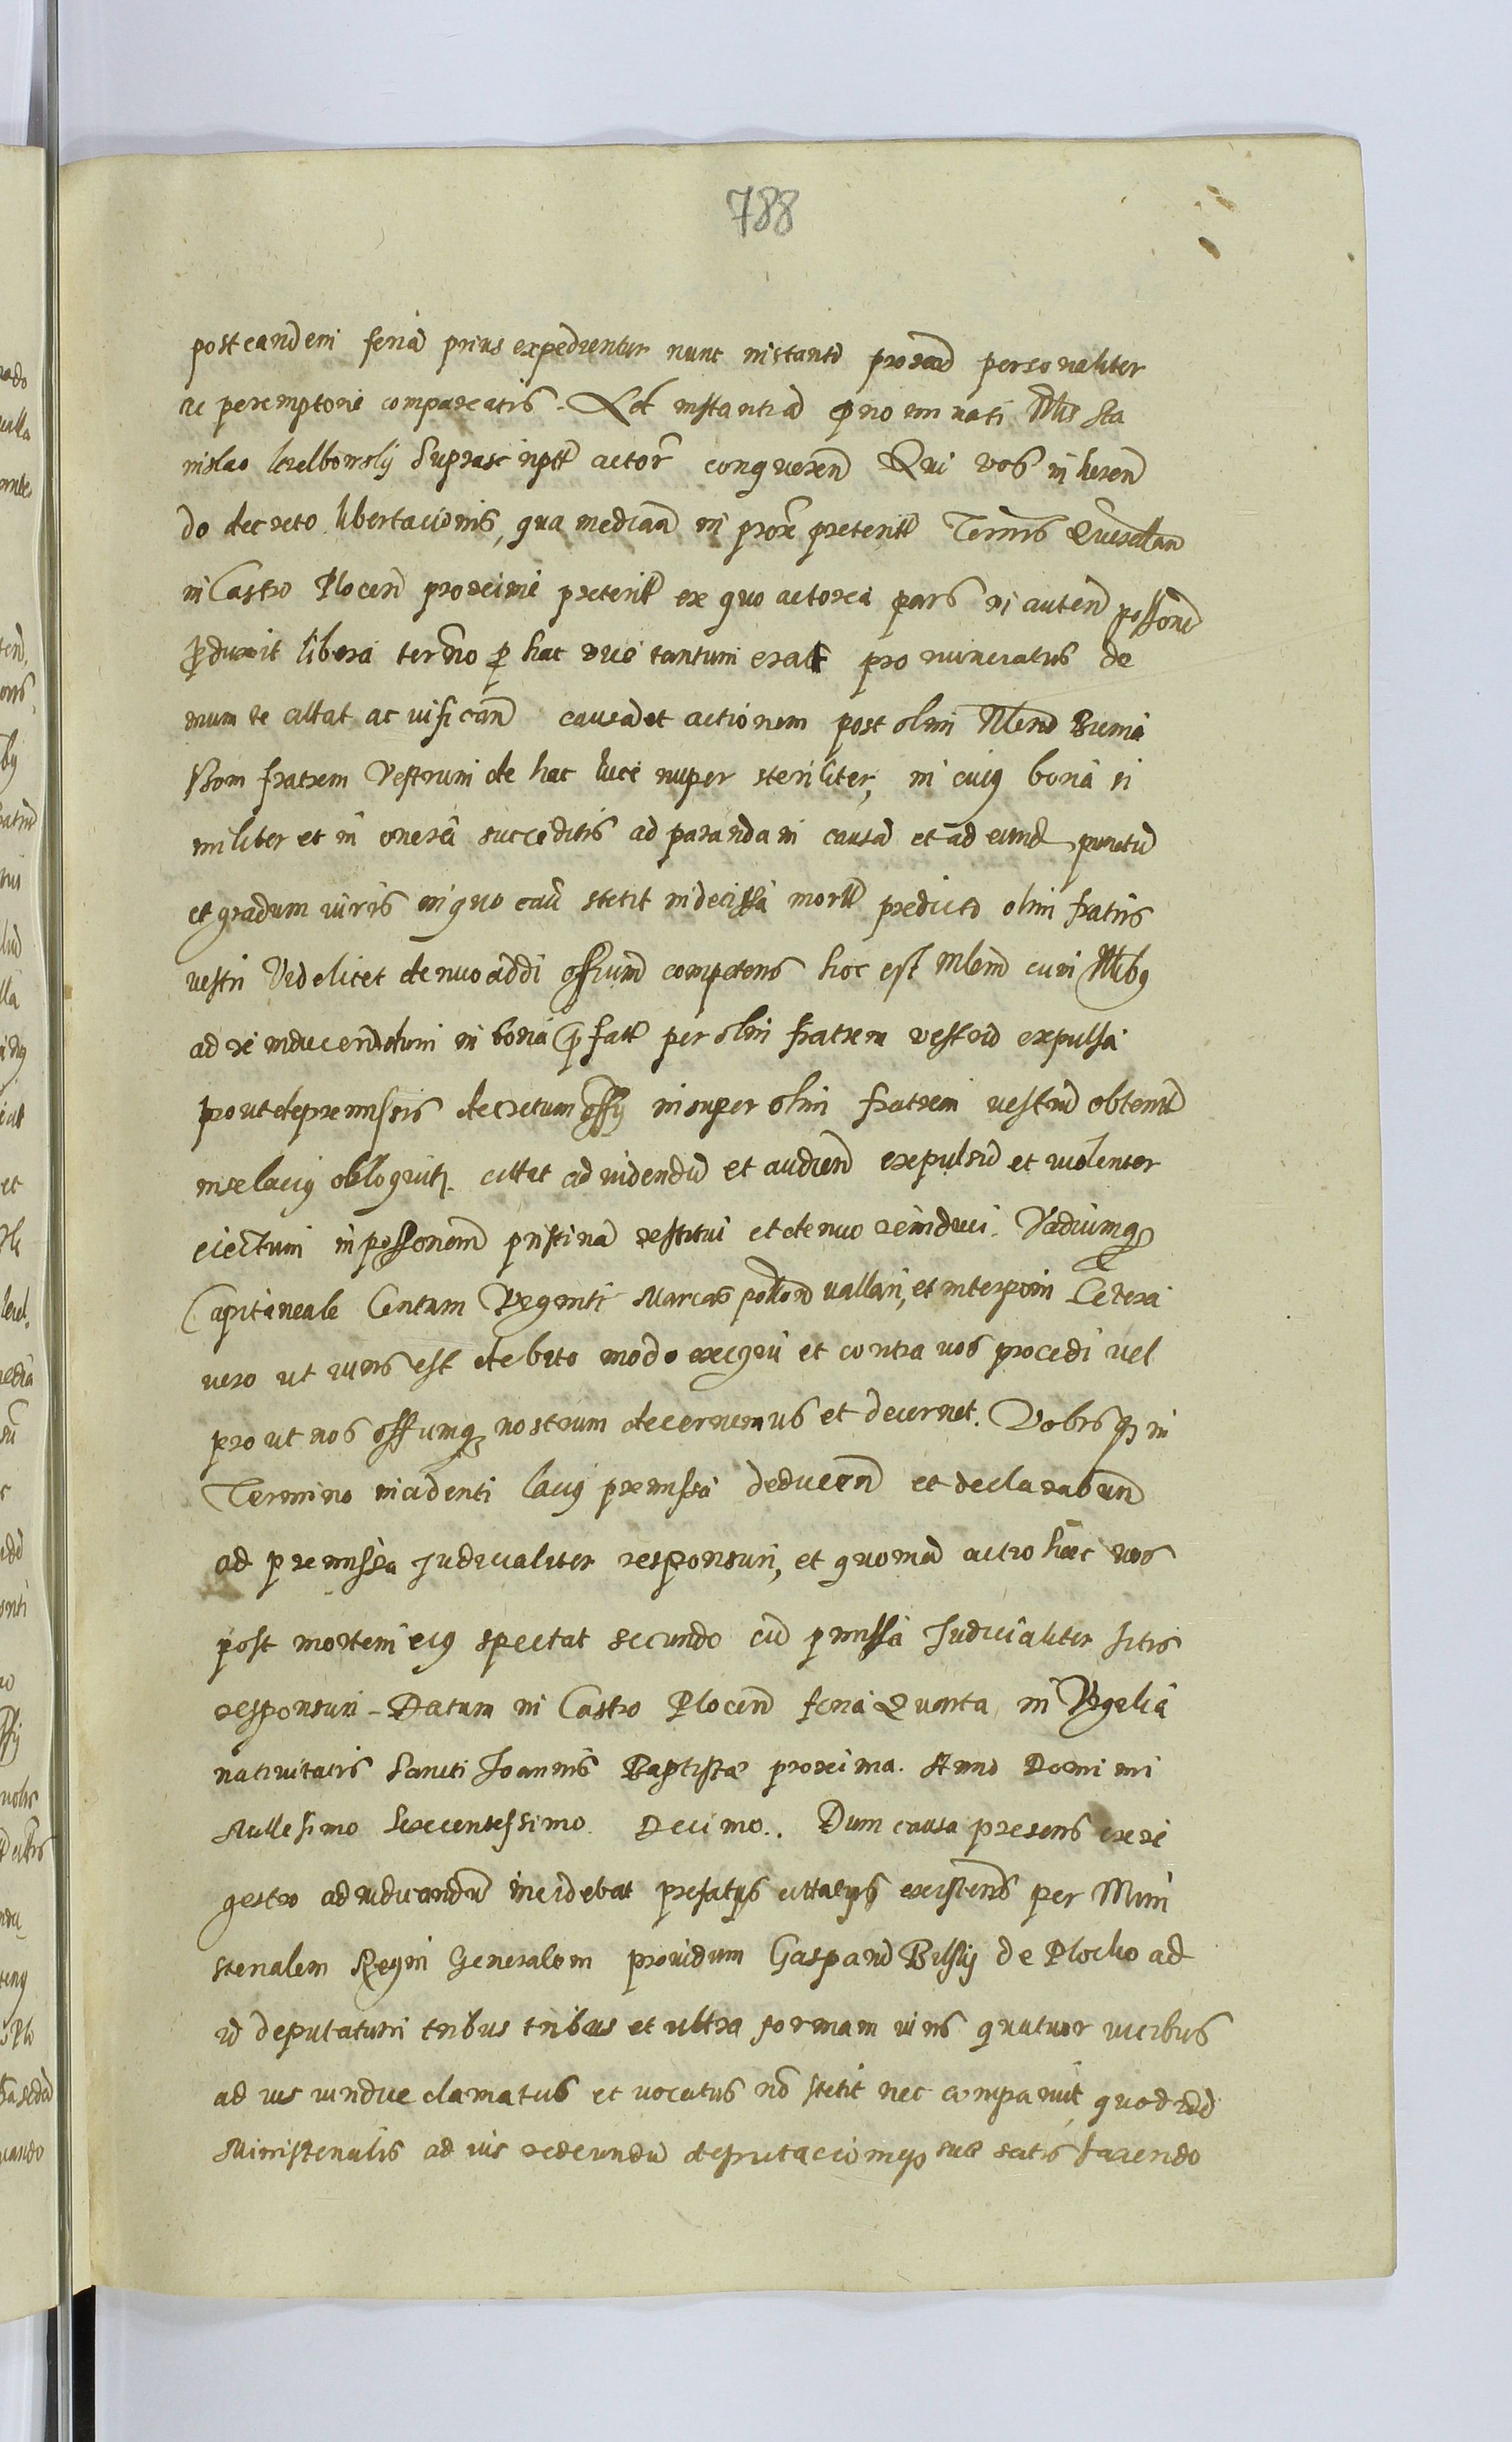 788
post eandem feria prius expedientur nunc instantd prosead personaliter
ac peremptorie compareatis. Ad instantiad pnominati Nlis Sta
nislao lezelbowsky Suprascriptt actor conqueren Qui vos in heren
do decreto libertacionis, qua median in prox preterit Termis Querelan
in Castro Plocen proxime preterit ex quo actorea pars in auten possone
pduxit libera termo p hac vice tantum erat pronunciatus de
mum te cittat ac vificand causad et actionem post olim Nlem
fratrem Vestrum de hac luce nuper steriliter, in cuig bona si
militer et in onera succeditis ad parandam causad et ad eund punctu
et gradum iuris in quo eau stetit indecissa mortt predictd olim fratris
vestri Videlicet denuo addi offium competens hoc est mlem cum Nlibg
ad re inducendetum in bona pfatt per olim fratrem vestrud expulsa
prout de premissis decretum offy insuper olim fratrem vestrud obtent
in relacig obloquitr. cittat ad videndu et audiend expulsu et violenter
eiectum in possonem pristina restitui et denuo reinduci. Vadiumqz
Capitaneale Centum Viginti Marcas pollon vallari, et interponi Cetera
vero ut iuris est debito modo exequi et contra vos procedi vel
prout nos offiumqz nostrum decernemus et decernet. Vobis qz in
Termino incidenti lacig premissa deducen et declarabun
ad premissa Judicialiter responsuri, et quoniad actio haec vos
post mortem eig spectat secundo cu pmissa Judicialiter sitis
responsuri - Datum in Castro Plocen feria Quarta in Vigilia
nativitatis Sancti Joannis Baptistae proxima. Anno Domini
Millesimo Sexcentessimo Decimo. Dum causa presens ex re
gestro adiudicandu incidebat prefatus cittatus existens per Mini
sterialem Regni Generalem providum Gaspard Bilsky de Plocko ad
id deputatum tribus tribus et ultra formam iuris quatuor vicibus
ad ius iundue clamatus et vocatus no stetit nec comparuit quod idd
Ministerialis ad ius redeundu deputacioniqz sue satis faciendo